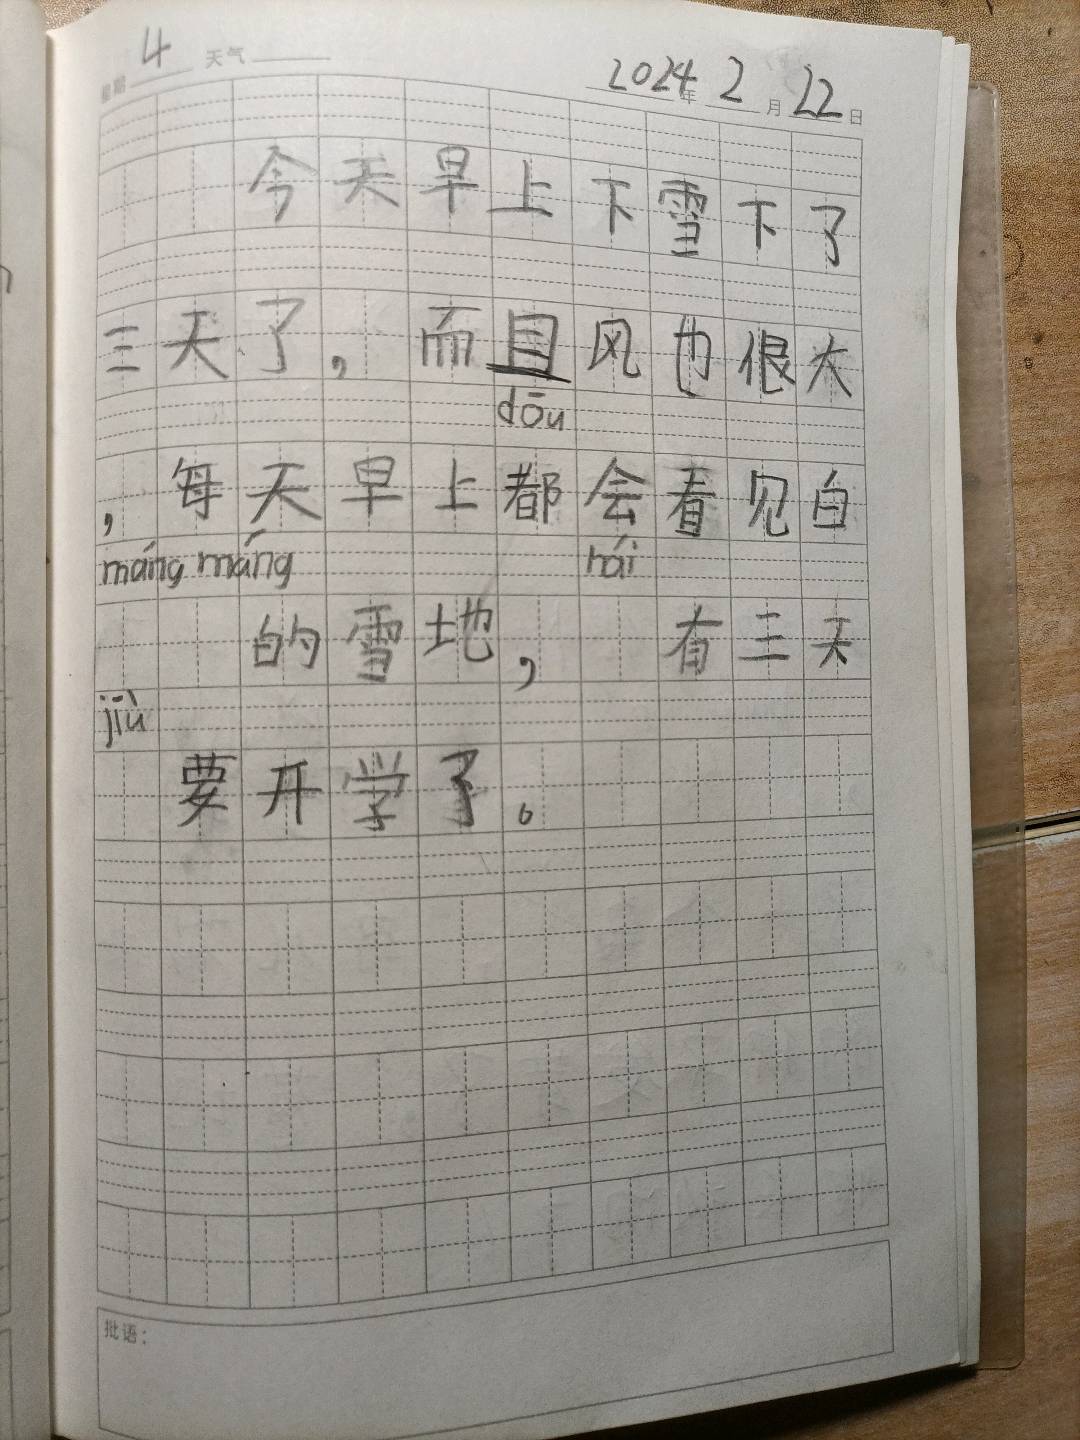 星期 4 天气 2024 年 2 月 22 日
今天早上下雪下了
三天了，而且风也很大
dōu
，每天早上都会看见白
máng máng hái
的雪地， 有三天
jiù
要开学了。
批语：